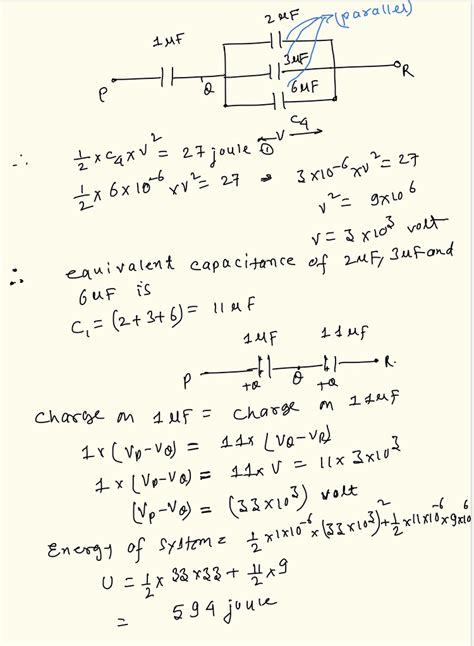 2μF (parallel)
1μF
3μF
P Q R
6μF
C₄
V
∴ ½ × C₄ × V² = 27 joule ①
½ × 6 × 10⁻⁶ × V² = 27 ⇒ 3×10⁻⁶ × V² = 27
V² = 9×10⁶
V = 3 × 10³ volt
∴ equivalent capacitance of 2μF, 3μF and
6μF is
C₁ = (2+3+6) = 11 μF
1μF 11μF
P Q R.
+Q +Q
Charge on 1μF = charge on 11μF
1×(Vp-VQ) = 11×(VQ-VR)
1×(Vp-VQ) = 11×V = 11×3×10³
(Vp-VQ) = (33×10³) volt
Energy of system = ½×1×10⁻⁶×(33×10³)²+½×11×10⁻⁶×9×10⁶
U = ½ × 33×33 + 11/2 × 9
= 594 joule